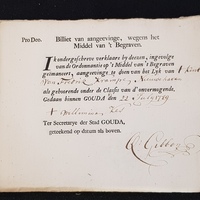 Pro Deo. Billiet van aangeevinge, wegens het
Middel van 't Begraven.
Ik ondergeschreve verklaare by deezen, ingevolge
van de Ordonnantie op 't Middel van 't Begraven
geëmaneert, aangeevinge te doen van het Lyk van 't kind
van
als gehoorende onder de Classis van d'onvermogende.
Gedaan binnen GOUDA den 22 July 1769
Ter Secretarye der Stad GOUDA,
getekend op datum als boven.